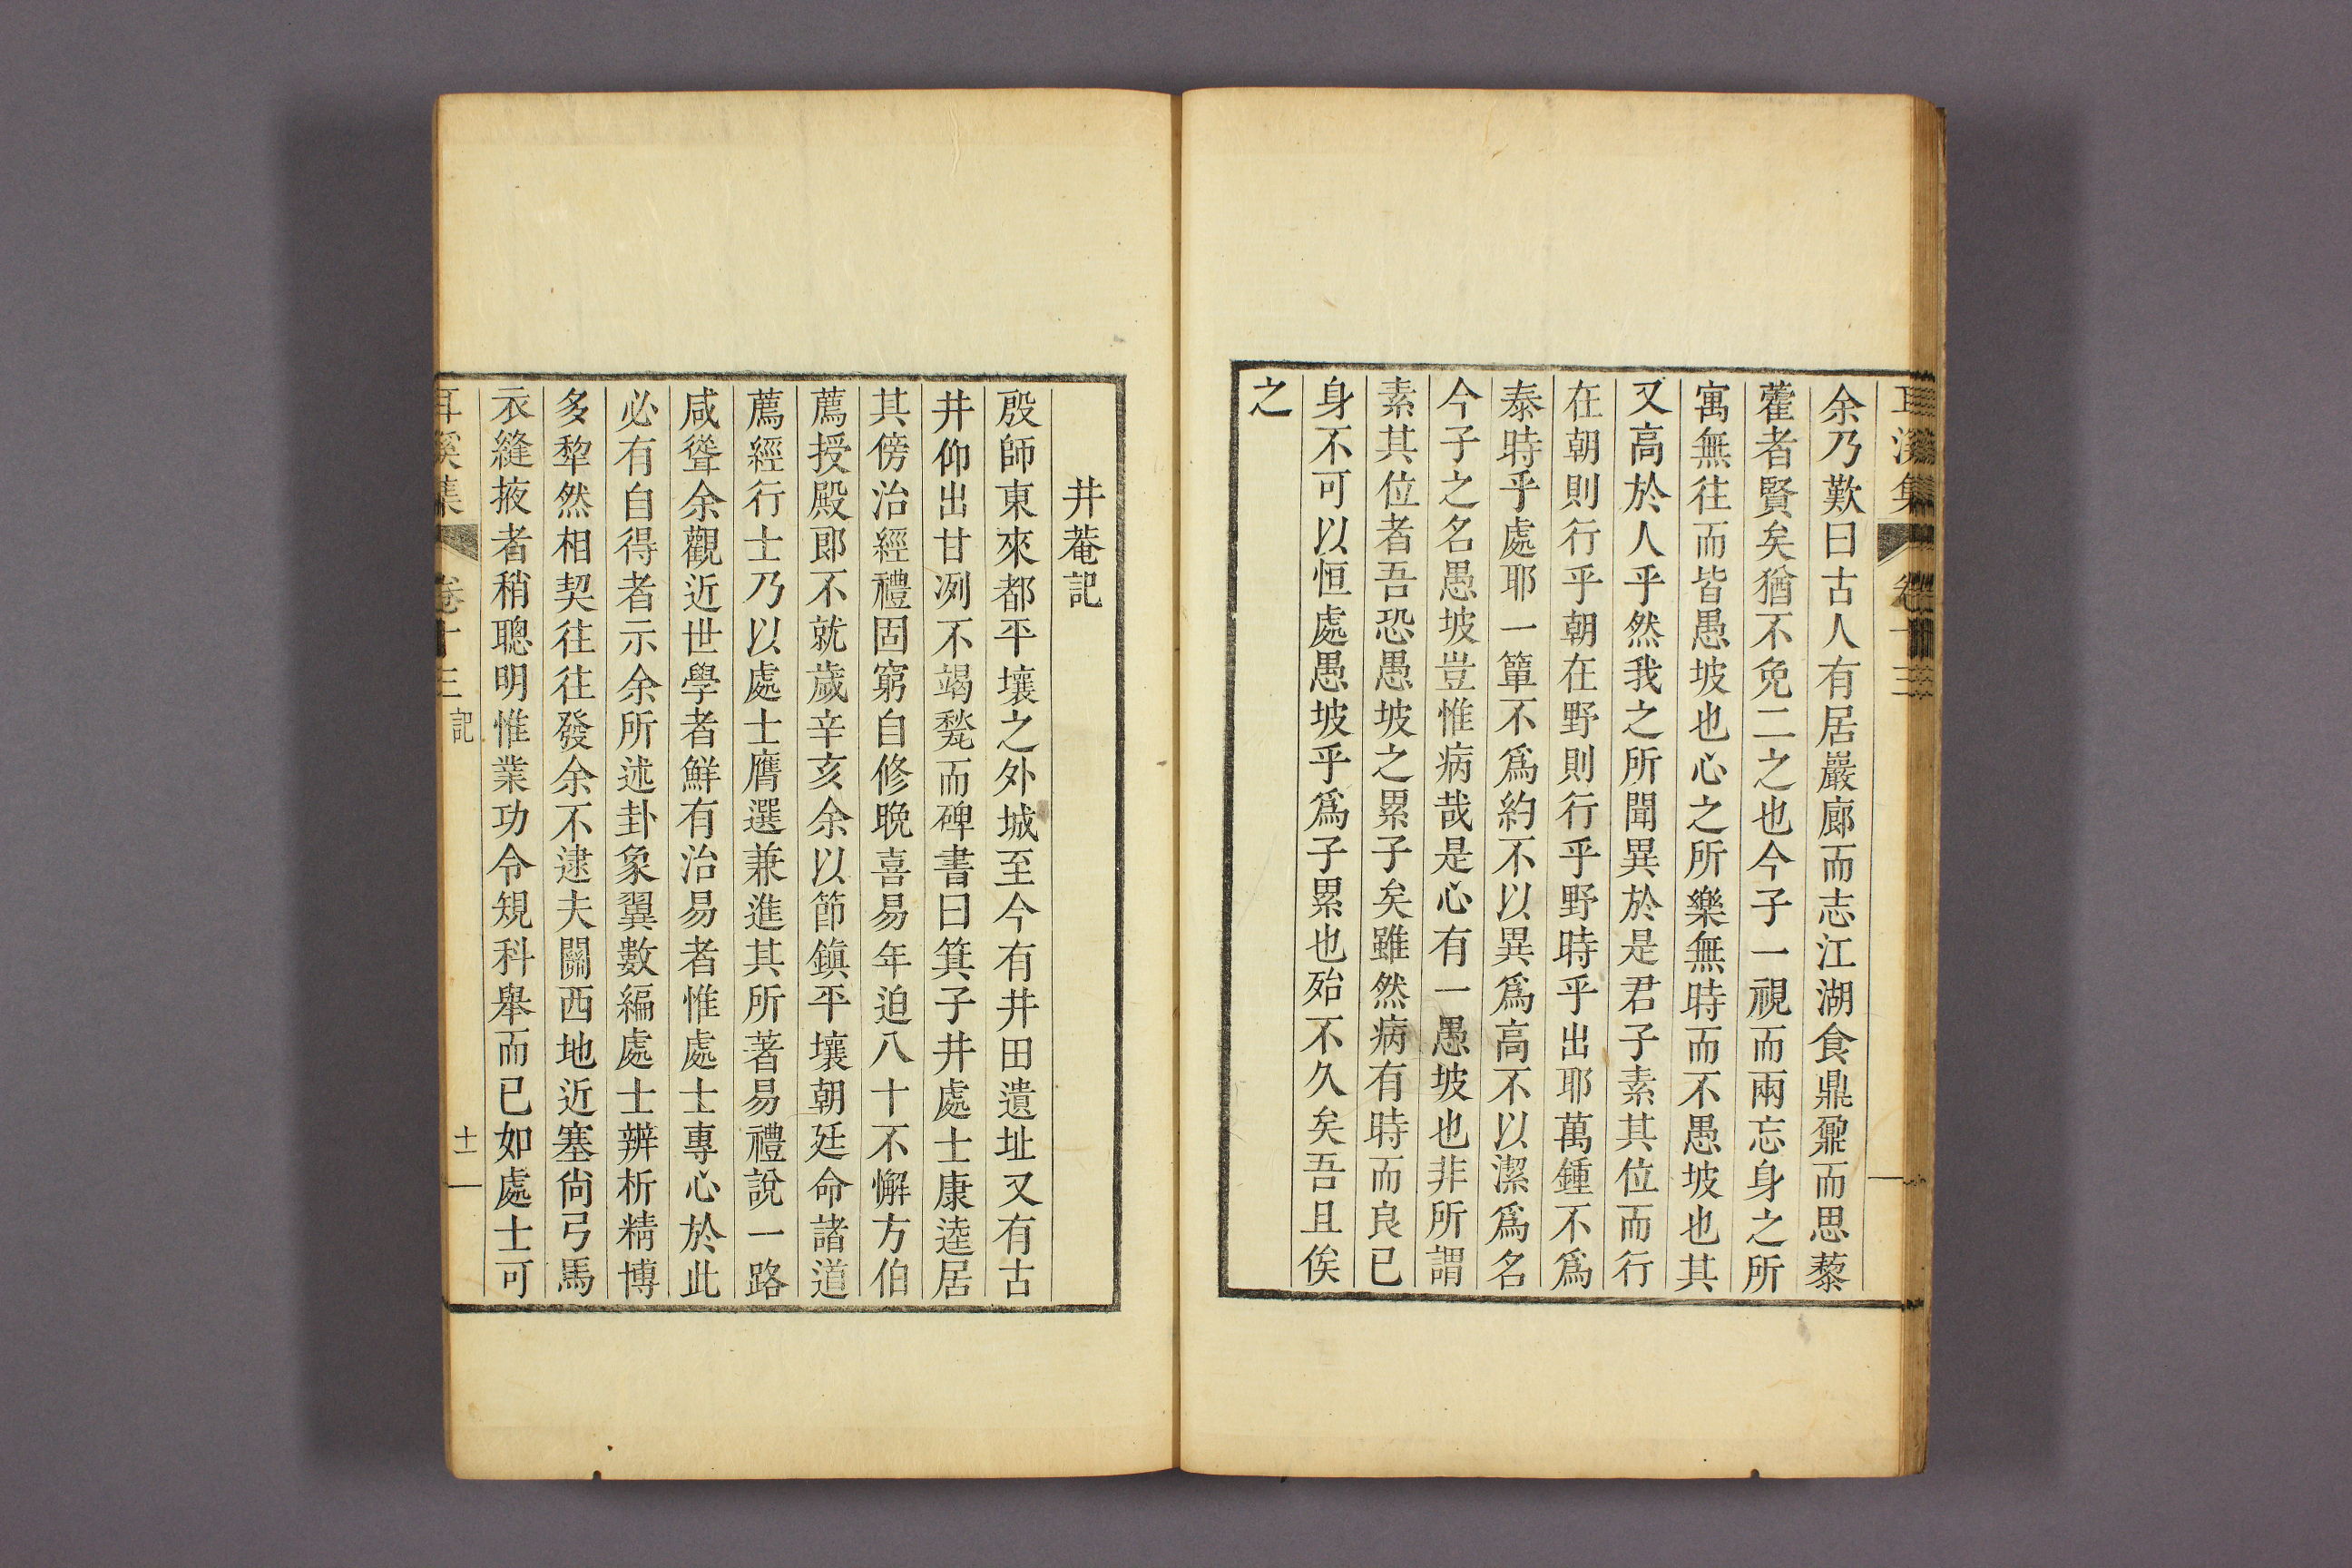 耳溪集 卷十三
余乃歎曰古人有居巖廊而志江湖食鼎鼐而思藜
藿者賢矣猶不免二之也今子一視而兩忘身之所
寓無往而皆愚坡也心之所樂無時而不愚坡也其
又高於人乎然我之所聞異於是君子素其位而行
在朝則行乎朝在野則行乎野時乎出耶萬鍾不爲
泰時乎處耶一簞不爲約不以異爲高不以潔爲名
今子之名愚坡豈惟病哉是心有一愚坡也非所謂
素其位者吾恐愚坡之累子矣雖然病有時而良已
身不可以恒處愚坡乎爲子累也殆不久矣吾且俟
之
井菴記
殷師東來都平壤之外城至今有井田遺址又有古
井仰出甘冽不竭甃而碑書曰箕子井處士康逵居
其傍治經禮固窮自修晩喜易年迫八十不懈方伯
薦授殿郞不就歲辛亥余以節鎭平壤朝廷命諸道
薦經行士乃以處士膺選兼進其所著易禮說一路
咸聳余觀近世學者鮮有治易者惟處士專心於此
必有自得者示余所述卦象翼數編處士辨析精博
多犂然相契往往發余不逮夫關西地近塞尙弓馬
衣縫掖者稍聰明惟業功令規科擧而已如處士可
耳溪集 卷十三 記 十一